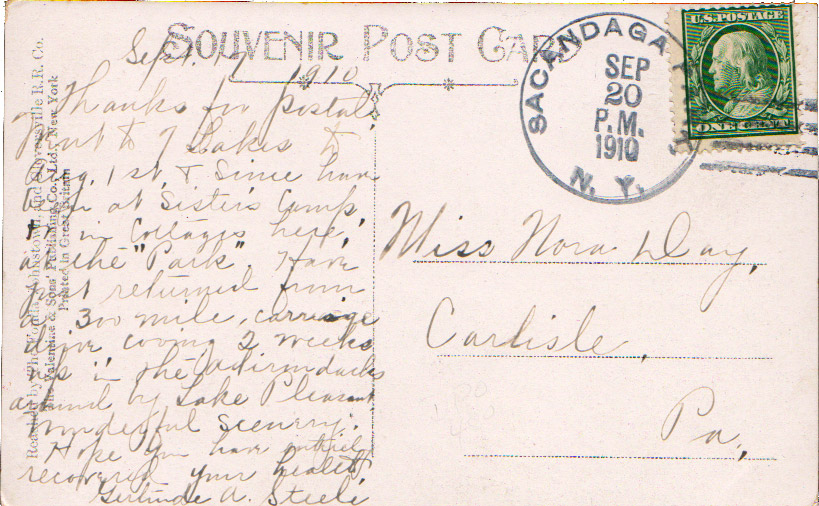 SOUVENIR POST CARD
Sept. 19, 1910
Thanks for postal.
Went to 7 Lakes
Aug. 1st, & since have
been at Sister's Camp,
& in Cottages here,
at the "Park". Have
just returned from
a 300 mile, carriage
drive covering 2 weeks
in the Adirondacks
around by Lake Pleasant
wonderful scenery.
Hope you have entirely
recovered your health.
Gertrude A. Steele
Reached by The Fonda, Johnstown, and Gloversville R. R. Co.
The Valentine & Sons Publishing Co., Ltd., New York
Printed in Great Britain
SACANDAGA
SEP
20
P.M.
1910
N. Y.
U.S. POSTAGE
ONE CENT
Miss Nora Day,
Carlisle,
Pa.,